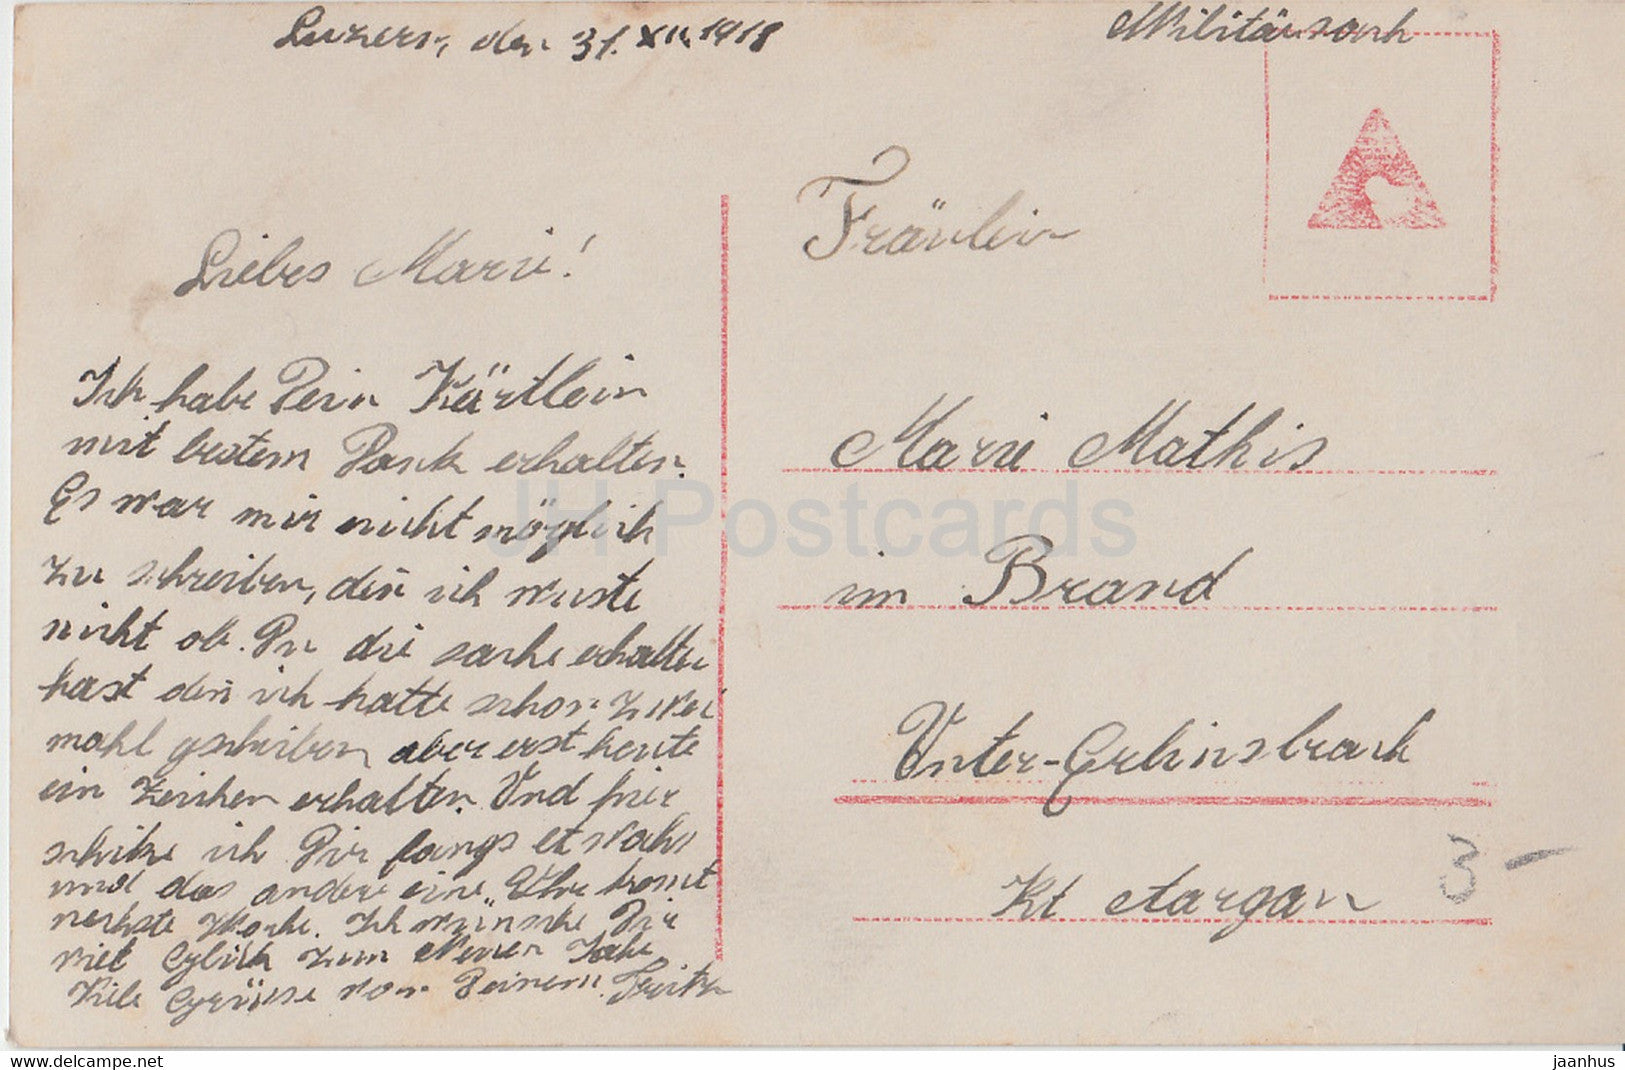 Luzern, den 31. XII. 1918
Militärsach
Liebes Marie!
Ich habe Dein Kärtlein
mit bestem Dank erhalten.
Es war mir nicht möglich
zu schreiben, den̄ ich wuste
nicht ob. Du die sache erhalten
hast den̄ ich hatte schon zwei
mahl gschriben aber erst heute
ein Zeichen erhalten. Und hier
schike ich Dir fangs etswahs
und das andere eine Uhr kommt
nechste Woche. Ich wünsche Dir
viel Glück zum Neuen Jahr
Viele Grüsse von Deinem Fritz
Fräulein
Marie Mathis
im Brand
Unter-Erlinsbach
Kt Aargau
3-
JH Postcards
delcampe.net
jaanhus